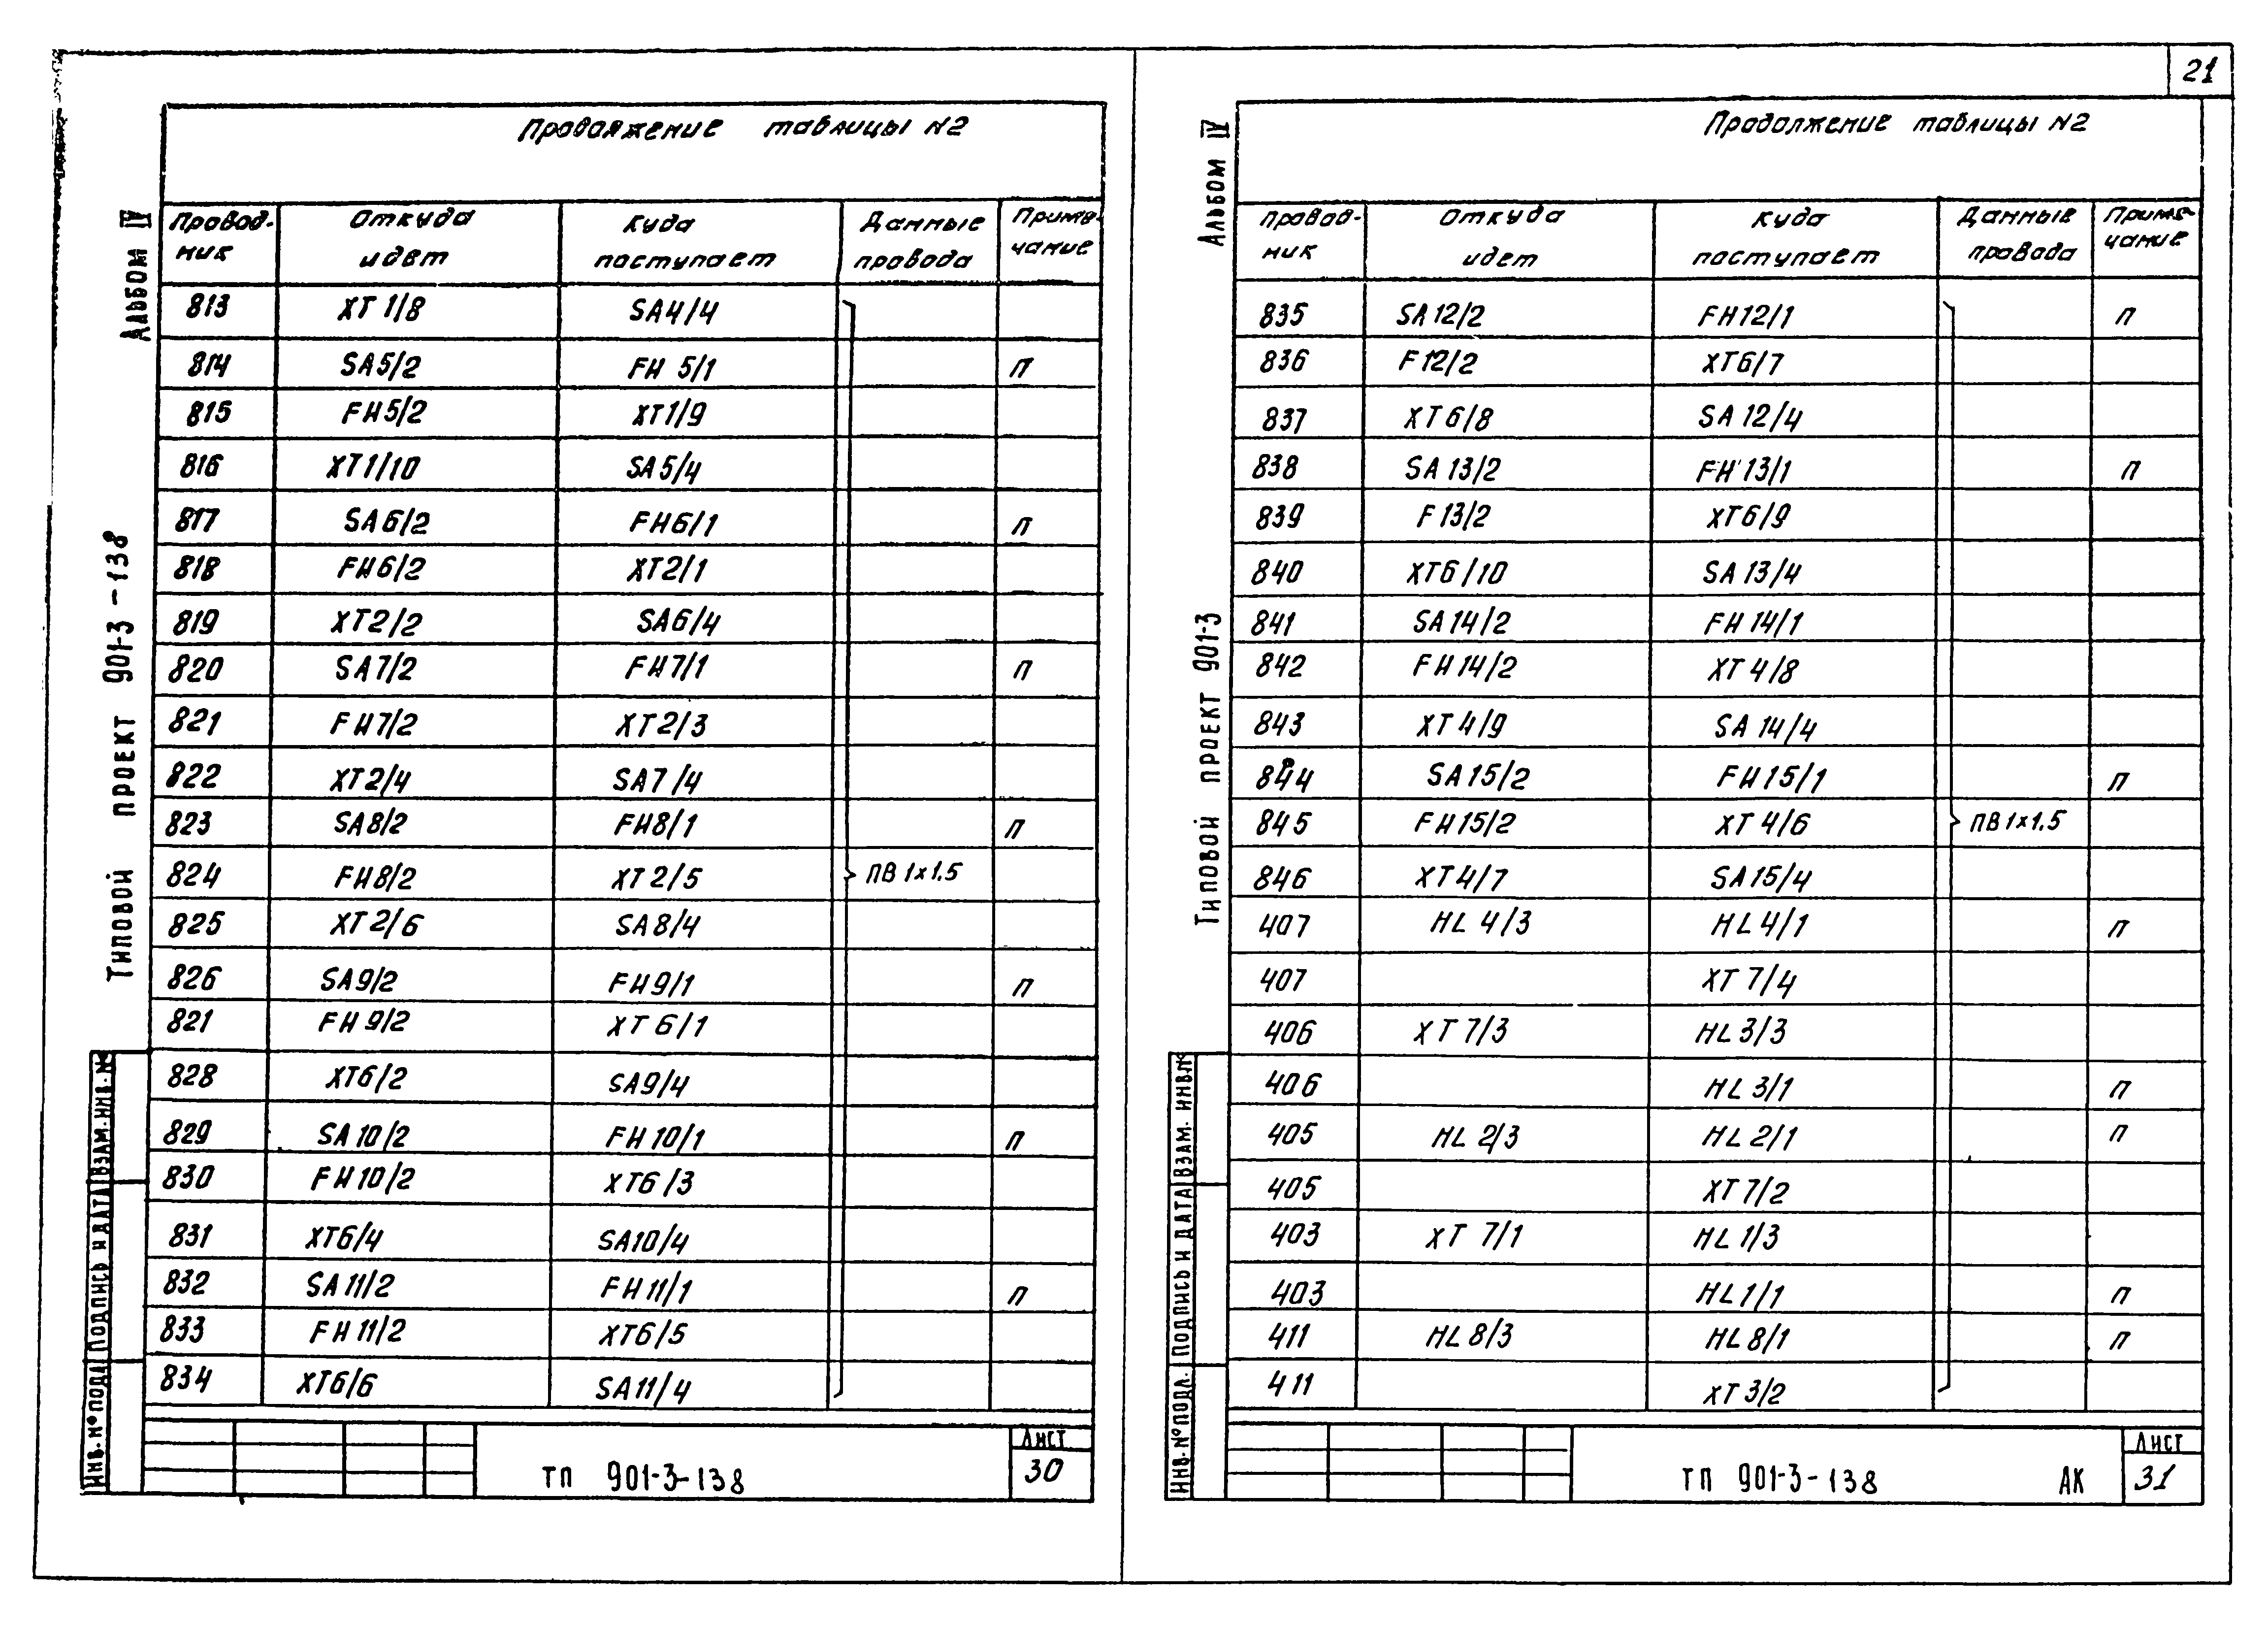 21
Альбом IV
Типовой проект 901-3-138
Продолжение таблицы N2
Провод-ник Откуда идет Куда поступает Данные провода Приме-чание
813 XT1/8 SA4/4
814 SA5/2 FH 5/1 П
815 FH5/2 XT1/9
816 XT1/10 SA5/4
817 SA6/2 FH6/1 П
818 FH6/2 XT2/1
819 XT2/2 SA6/4
820 SA7/2 FH7/1 П
821 FH7/2 XT2/3
822 XT2/4 SA7/4
823 SA8/2 FH8/1 П
824 FH8/2 XT2/5 ПВ 1х1.5
825 XT2/6 SA8/4
826 SA9/2 FH9/1 П
821 FH9/2 XT6/1
828 XT6/2 SA9/4
829 SA10/2 FH10/1 П
830 FH10/2 XT6/3
831 XT6/4 SA10/4
832 SA11/2 FH11/1 П
833 FH11/2 XT6/5
834 XT6/6 SA11/4
Инв.N°подл Подпись и дата Взам.инв.N
ТП 901-3-138
Лист
30
Альбом IV
Типовой проект 901-3
Продолжение таблицы N2
Провод-ник Откуда идет Куда поступает Данные провода Приме-чание
835 SA12/2 FH12/1 П
836 F12/2 XT6/7
837 XT6/8 SA12/4
838 SA13/2 FH13/1 П
839 F13/2 XT6/9
840 XT6/10 SA13/4
841 SA14/2 FH14/1
842 FH14/2 XT4/8
843 XT4/9 SA14/4
844 SA15/2 FH15/1 П
845 FH15/2 XT4/6 ПВ 1х1.5
846 XT4/7 SA15/4
407 HL 4/3 HL4/1 П
407 XT7/4
406 XT7/3 HL3/3
406 HL 3/1 П
405 HL 2/3 HL2/1 П
405 XT7/2
403 XT 7/1 HL1/3
403 HL1/1 П
411 HL8/3 HL8/1 П
411 XT3/2
Инв.N°подл. Подпись и дата Взам. инвN
ТП 901-3-138 АК
Лист
31